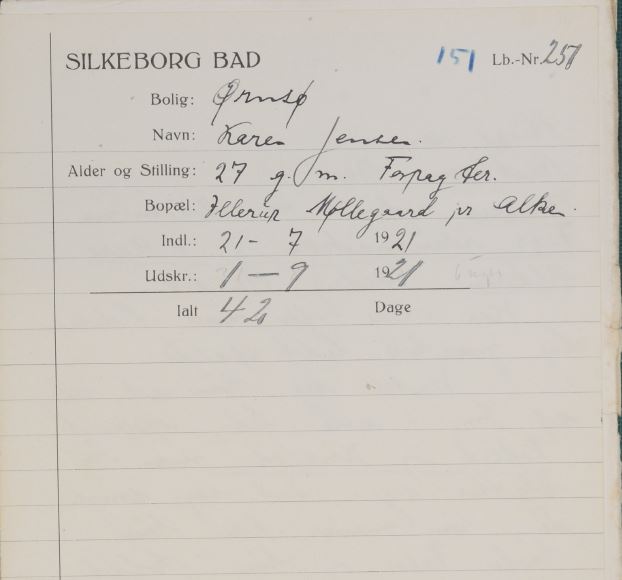 SILKEBORG BAD 151 Lb.-Nr. 251
Bolig: Ørnsø
Navn: Karen Jensen.
Alder og Stilling: 27 g. m. Forpagter.
Bopæl: Illerup Møllegaard pr Alken.
Indl.: 21 - 7 1921
Udskr.: 1 - 9 1921
Ialt 42 Dage